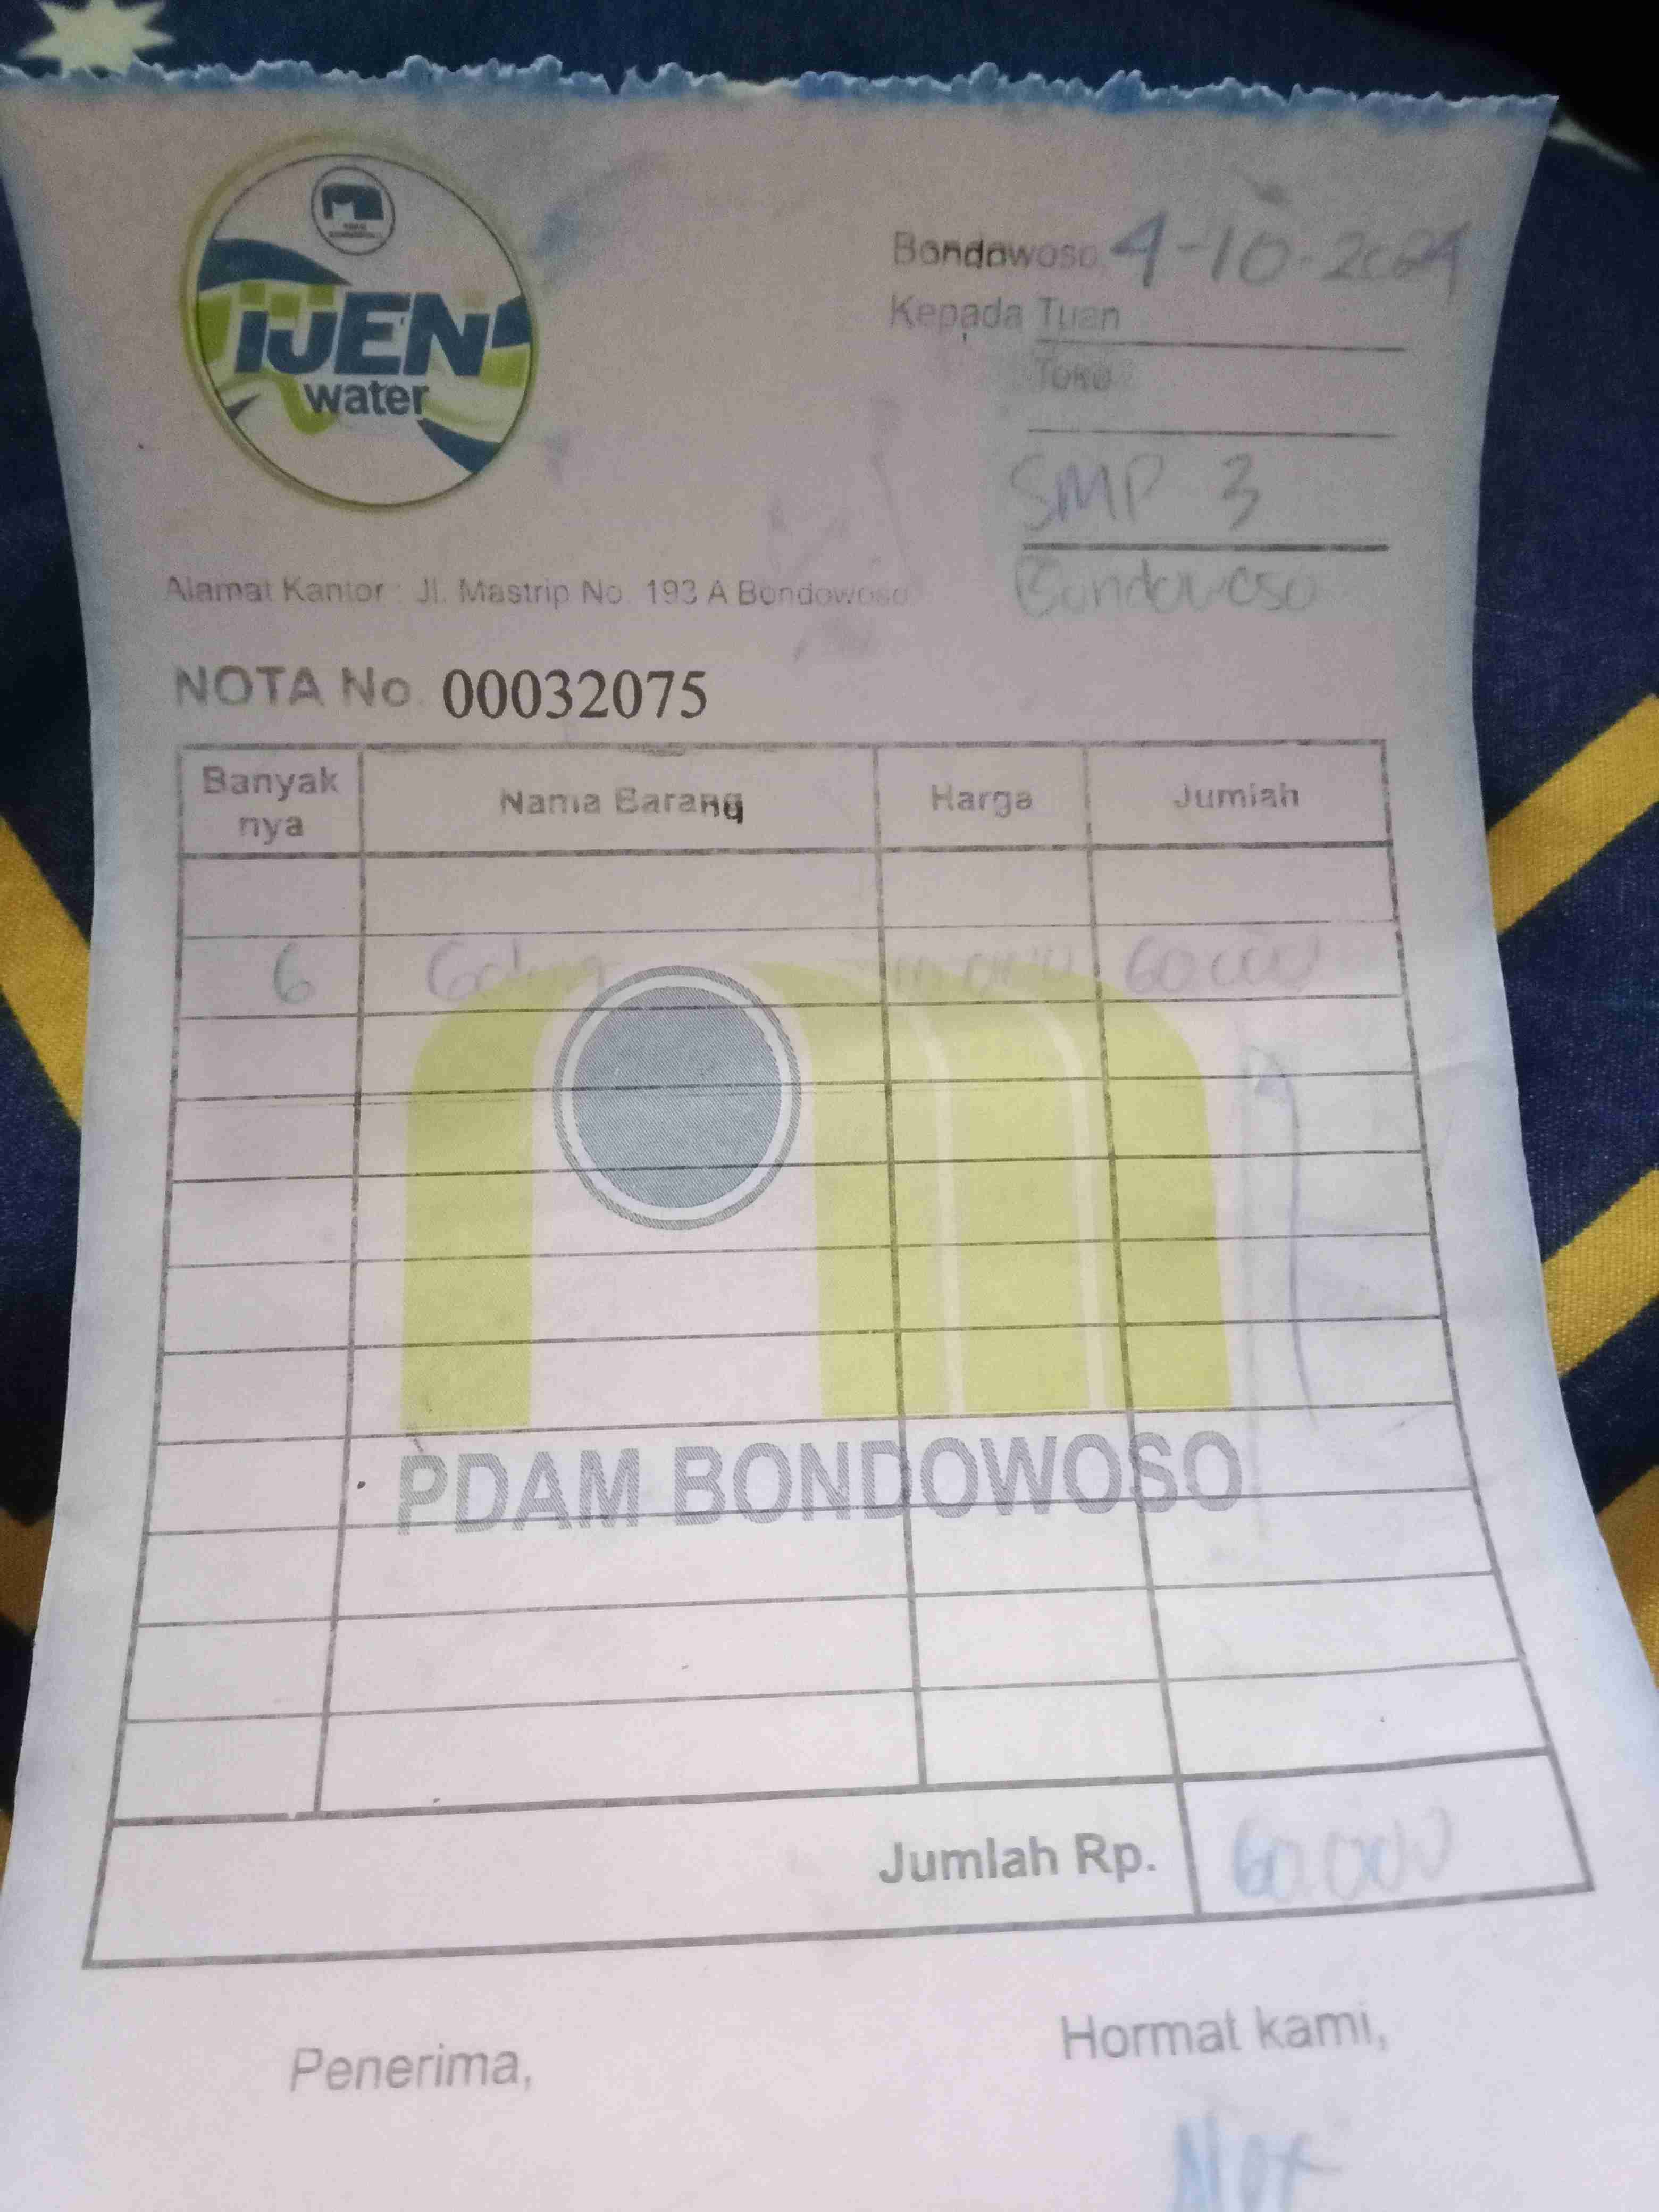 iJEN
water
Bondowoso, 4-10-2024
Kepada Tuan
Toko
SMP 3
Bondowoso
Alamat Kantor : Jl. Mastrip No. 193 A Bondowoso
NOTA No. 00032075
Banyak nya Nama Barang Harga Jumlah
6 60.000
PDAM BONDOWOSO
Jumlah Rp. 60.000
Penerima, Hormat kami,